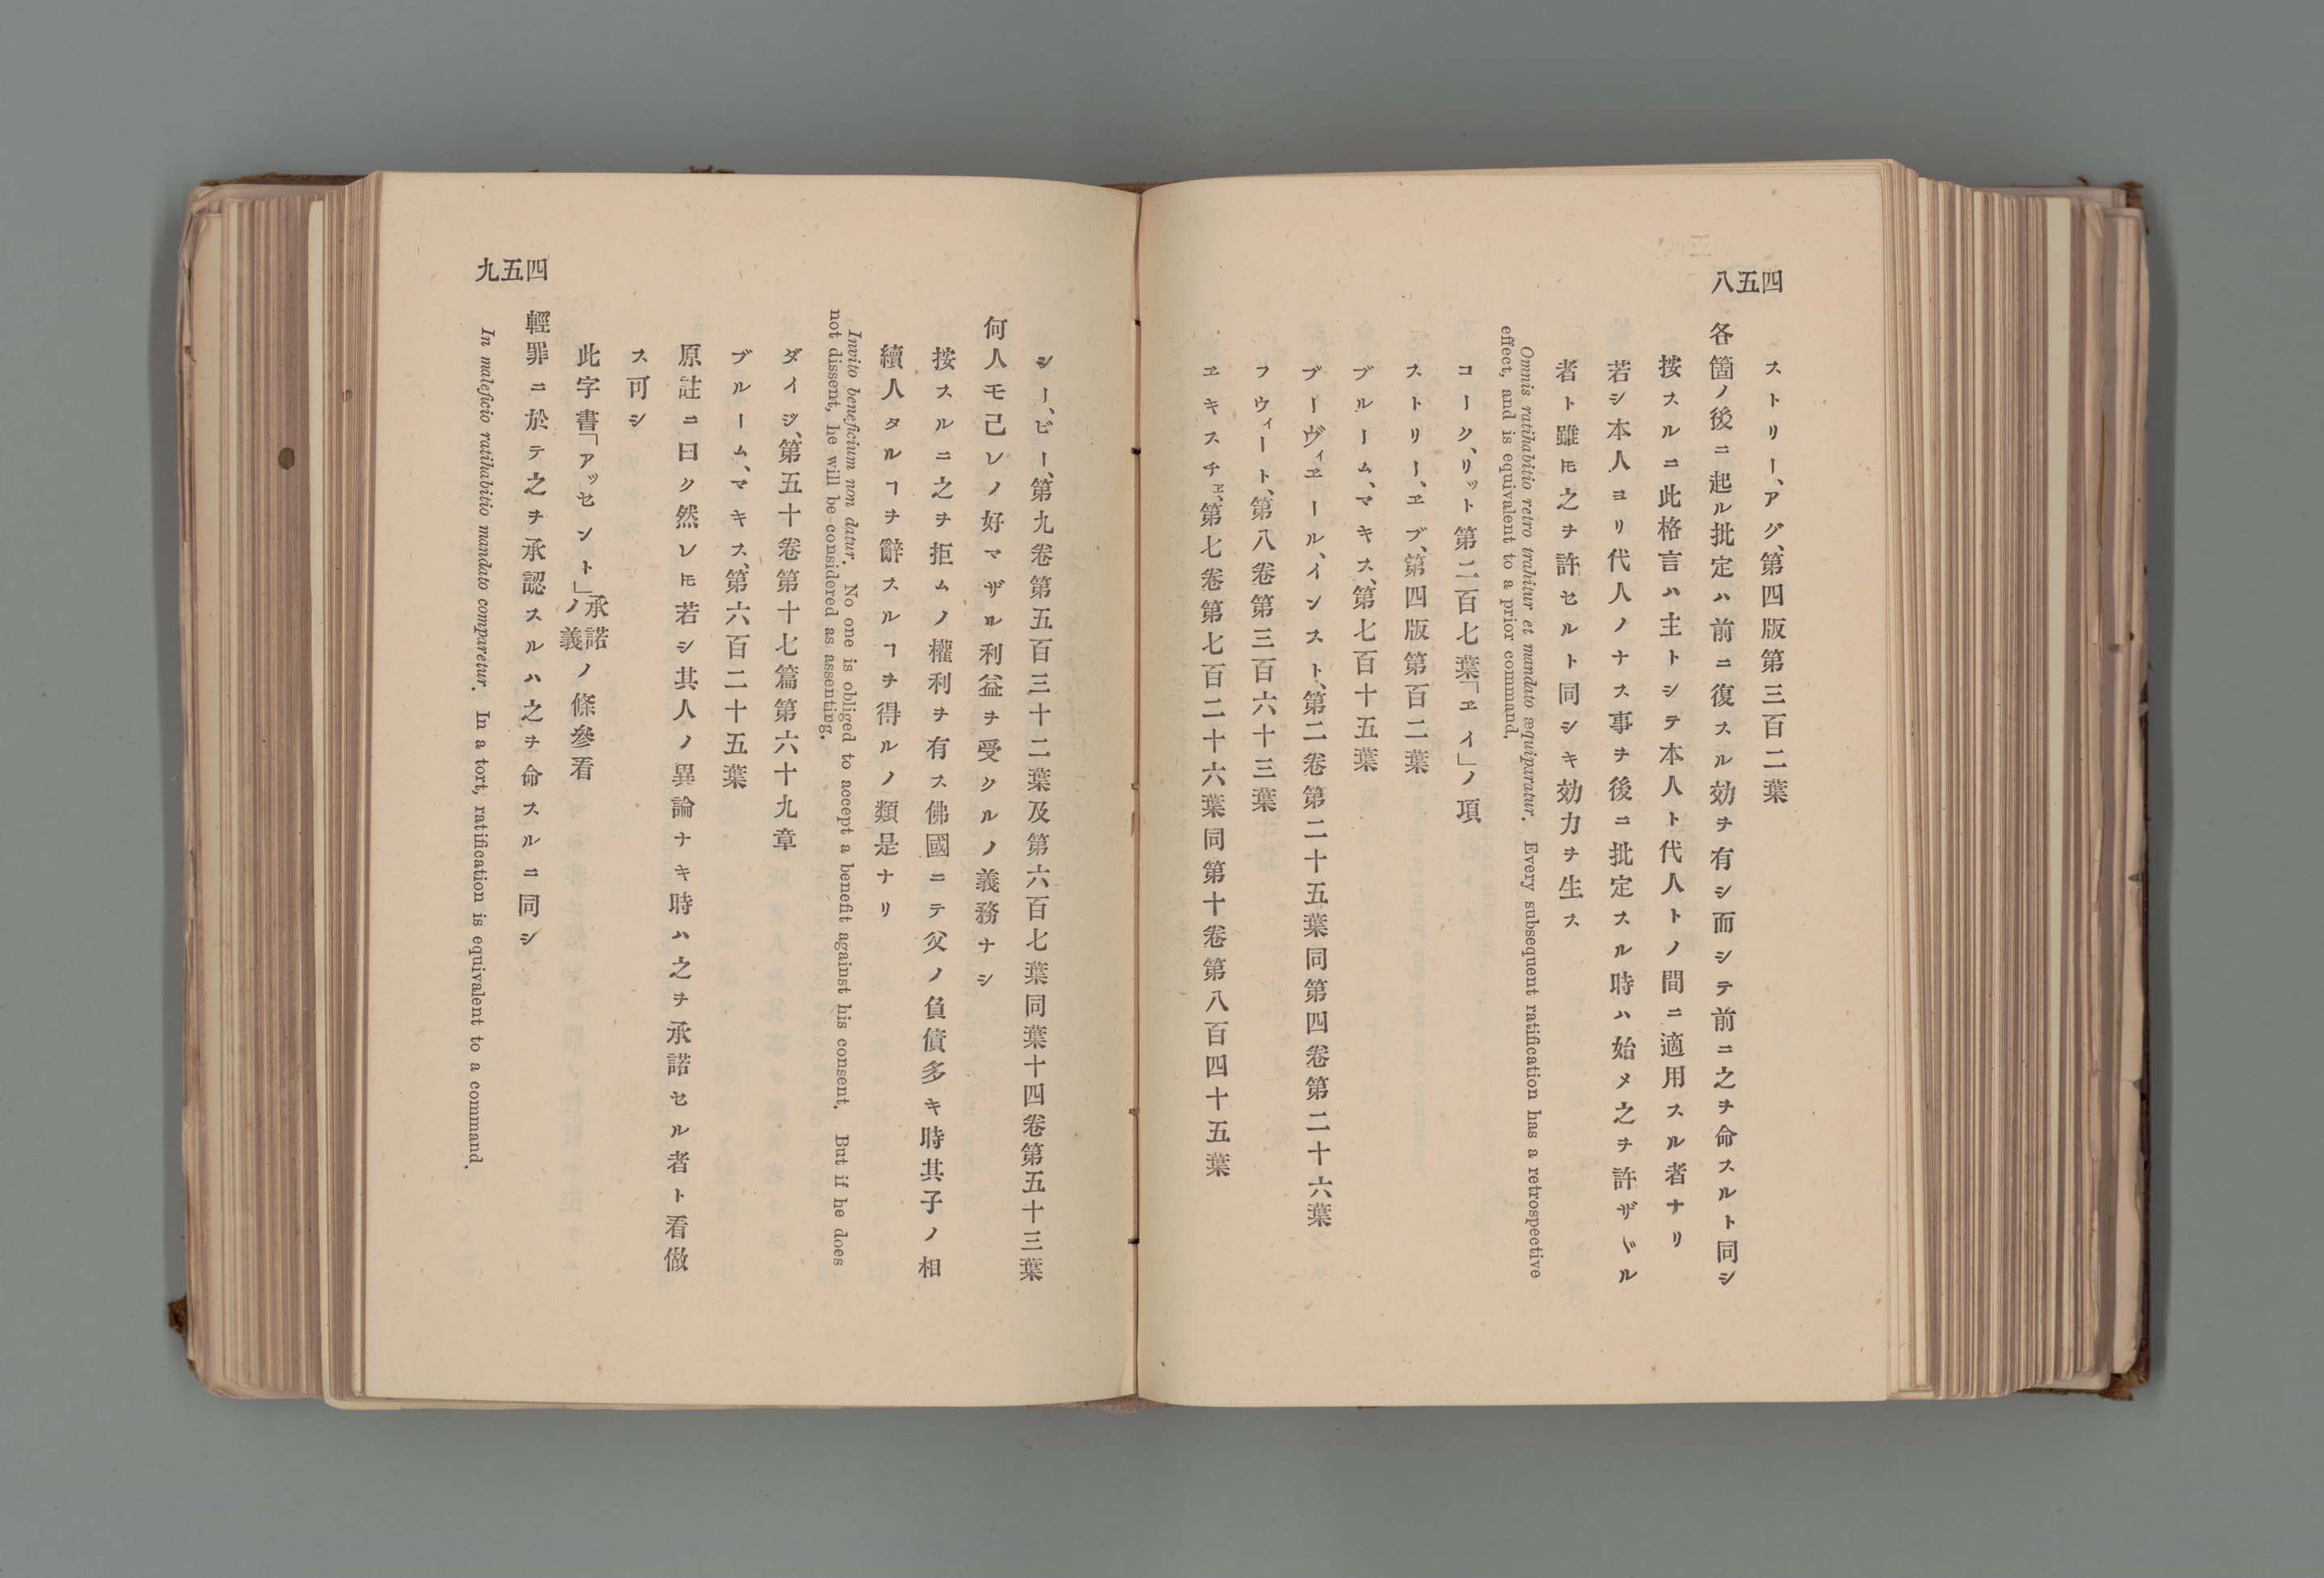 四五八
ストリー、アグ、第四版第三百二葉
各箇ノ後ニ起ル批定ハ前ニ復スル効ヲ有シ而シテ前ニ之ヲ命スルト同シ
按スルニ此格言ハ主トシテ本人ト代人トノ間ニ適用スル者ナリ
若シ本人ヨリ代人ノナス事ヲ後ニ批定スル時ハ始メ之ヲ許ザヾル
者ト雖𪜈之ヲ許セルト同シキ効力ヲ生ス
Omnis ratihabitio retro trahitur et mandato æquiparatur. Every subsequent ratification has a retrospective
effect, and is equivalent to a prior command.
コーク、リット第二百七葉「ヱイ」ノ項
ストリー、ヱブ、第四版第百二葉
ブルーム、マキス、第七百十五葉
ブーヴィヱール、インスト、第二卷第二十五葉同第四卷第二十六葉
フウィート、第八卷第三百六十三葉
ヱキスチヱ、第七卷第七百二十六葉同第十卷第八百四十五葉
四五九
シー、ビー、第九卷第五百三十二葉及第六百七葉同葉十四卷第五十三葉
何人モ己レノ好マザル利益ヲ受クルノ義務ナシ
按スルニ之ヲ拒ムノ權利ヲ有ス佛國ニテ父ノ負債多キ時其子ノ相
續人タルヿヲ辭スルヿヲ得ルノ類是ナリ
Invito beneficium non datur. No one is obliged to accept a benefit against his consent. But if he does
not dissent, he will be considered as assenting.
ダイジ、第五十卷第十七篇第六十九章
ブルーム、マキス、第六百二十五葉
原註ニ曰ク然レ𪜈若シ其人ノ異論ナキ時ハ之ヲ承諾セル者ト看做
ス可シ
此字書「アッセント」承諾ノ義ノ條參看
輕罪ニ於テ之ヲ承認スルハ之ヲ命スルニ同シ
In maleficio ratihabitio mandato comparetur. In a tort, ratification is equivalent to a command.